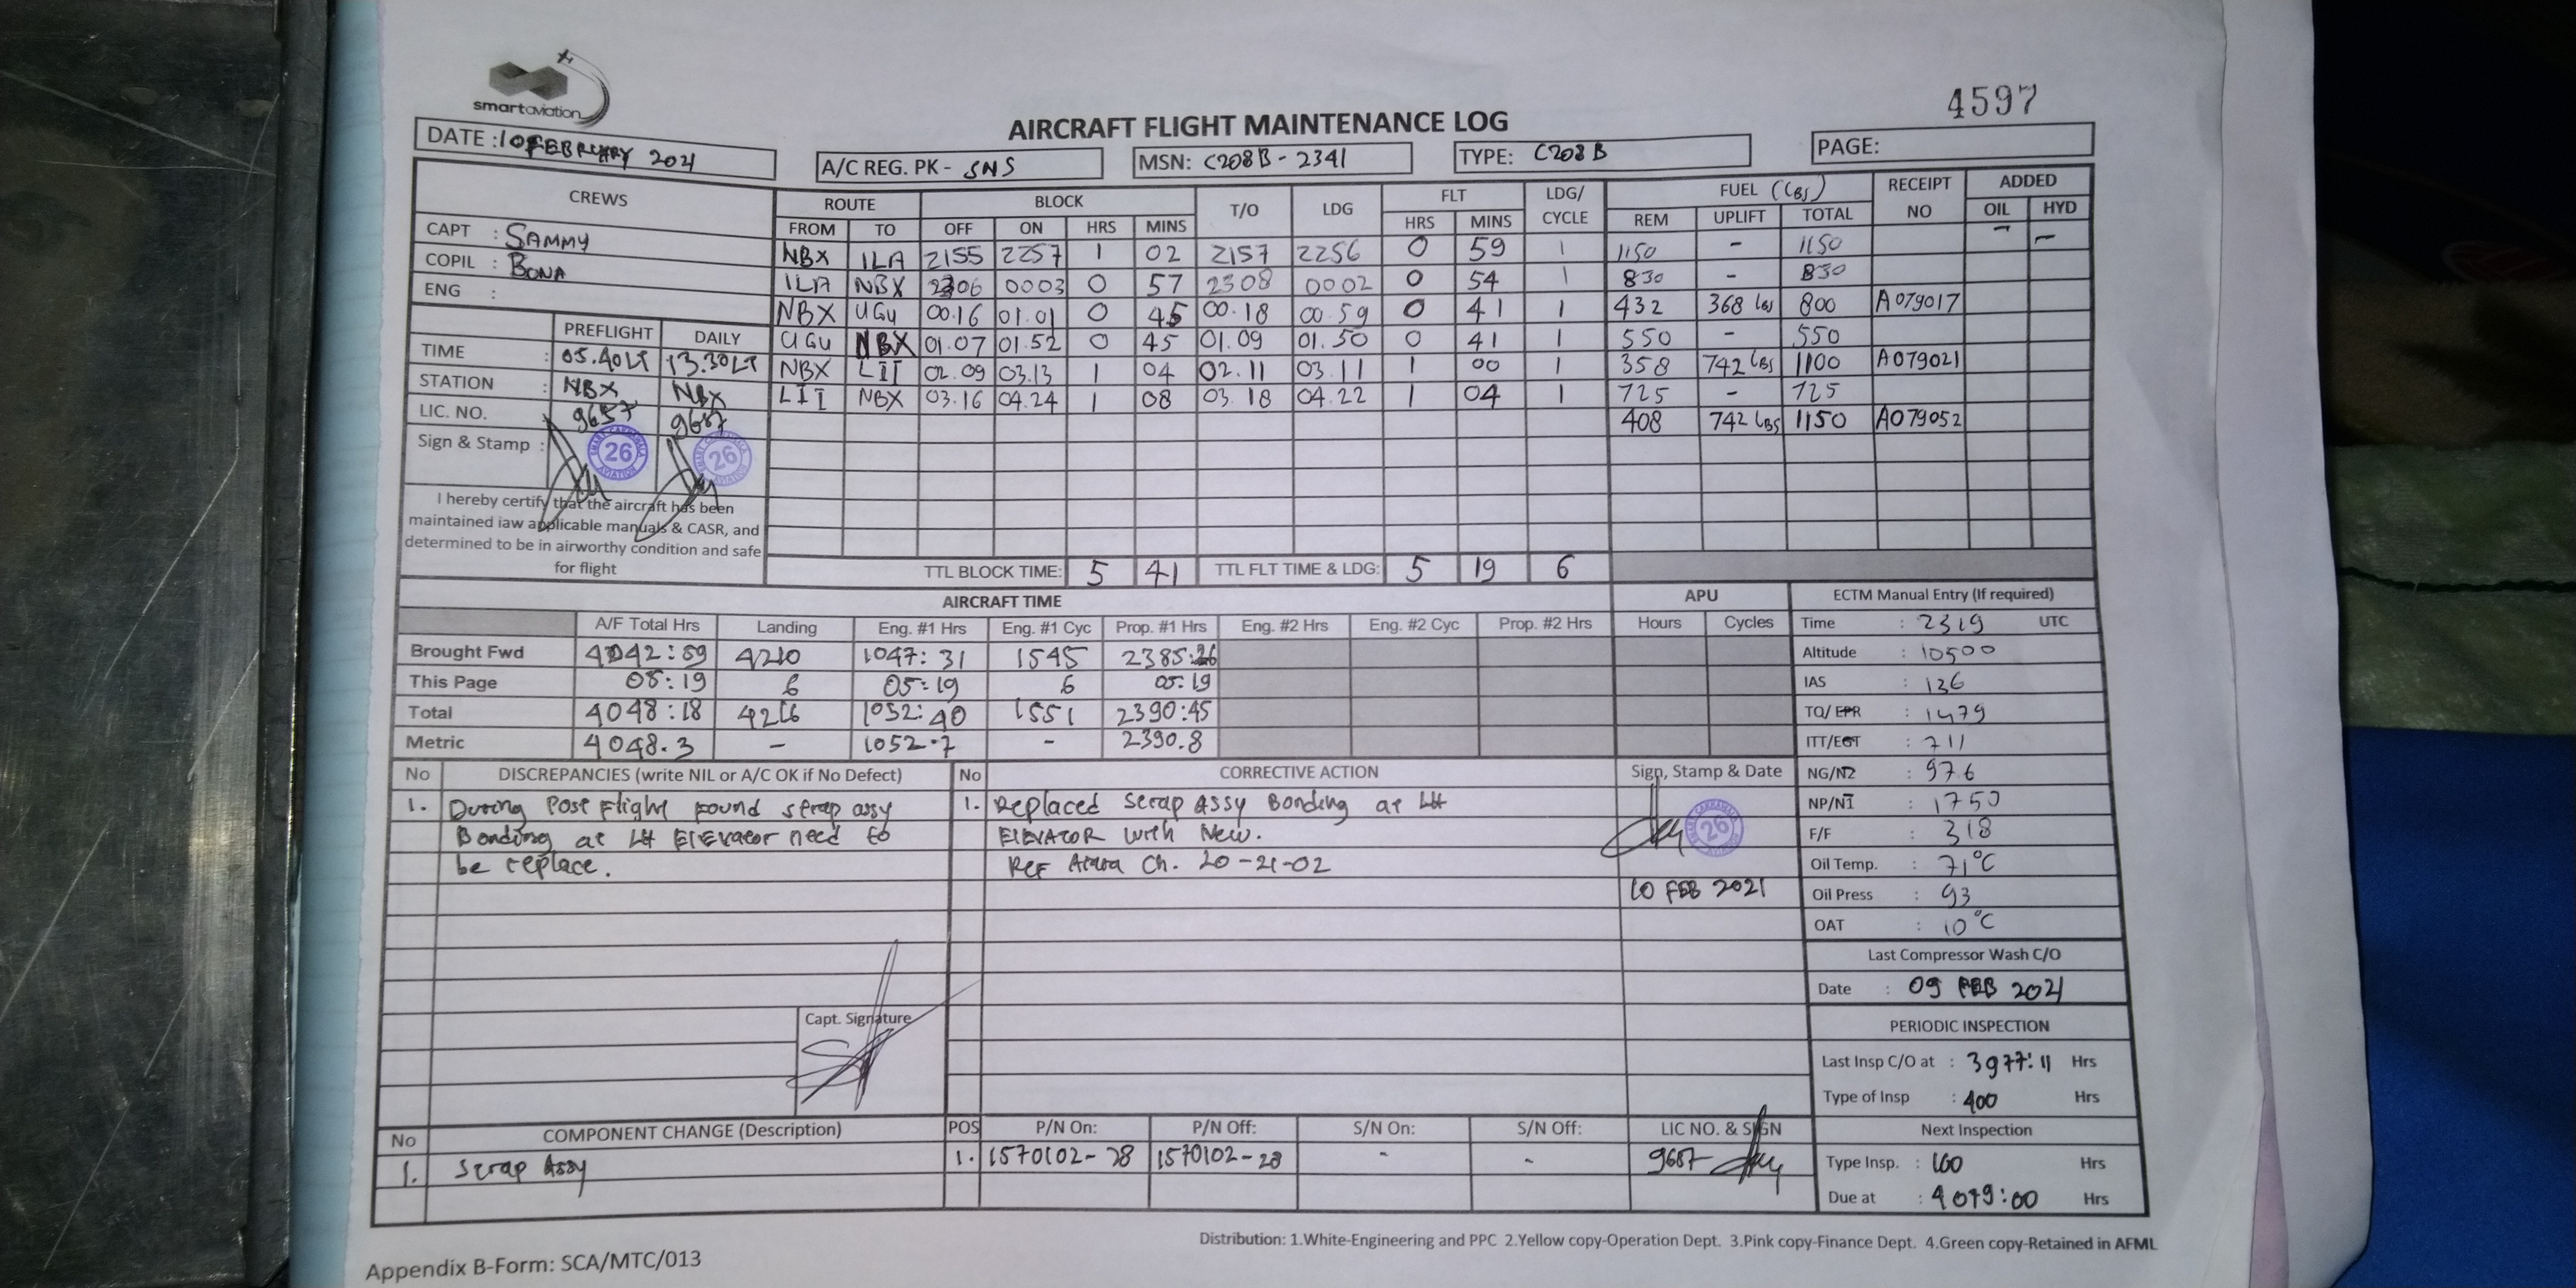 smart aviation
4597
AIRCRAFT FLIGHT MAINTENANCE LOG
DATE : 10 FEBRUARY 2021
A/C REG. PK - SNS
MSN: C208B - 2341
TYPE: C208B
PAGE:
CREWS
CAPT : SAMMY
COPIL : BONA
ENG :
PREFLIGHT DAILY
TIME : 05.40LT 13.30LT
STATION : NBX NBX
LIC. NO. 9687 9687
Sign & Stamp :
26 26
I hereby certify that the aircraft has been
maintained iaw applicable manuals & CASR, and
determined to be in airworthy condition and safe
for flight
ROUTE BLOCK T/O LDG FLT LDG/ CYCLE FUEL (LBS) RECEIPT NO ADDED
FROM TO OFF ON HRS MINS HRS MINS REM UPLIFT TOTAL OIL HYD
NBX ILA 2155 2257 1 02 2157 2256 0 59 1 1150 - 1150 - -
ILA NBX 2306 0003 0 57 2308 0002 0 54 1 830 - 830
NBX UGU 00.16 01.01 0 45 00.18 00.59 0 41 1 432 368 lbs 800 A079017
UGU NBX 01.07 01.52 0 45 01.09 01.50 0 41 1 550 - 550
NBX LII 02.09 03.13 1 04 02.11 03.11 1 00 1 358 742 LBS 1100 A079021
LII NBX 03.16 04.24 1 08 03.18 04.22 1 04 1 725 - 725
408 742 LBS 1150 A079052
TTL BLOCK TIME: 5 41 TTL FLT TIME & LDG: 5 19 6
AIRCRAFT TIME APU
A/F Total Hrs Landing Eng. #1 Hrs Eng. #1 Cyc Prop. #1 Hrs Eng. #2 Hrs Eng. #2 Cyc Prop. #2 Hrs Hours Cycles
Brought Fwd 4042:59 4210 1047:31 1545 2385:26
This Page 05:19 6 05:19 6 05:19
Total 4048:18 4216 1052:40 1551 2390:45
Metric 4048.3 - 1052.7 - 2390.8
ECTM Manual Entry (If required)
Time : 2319 UTC
Altitude : 10500
IAS : 136
TQ/EPR : 1479
ITT/EGT : 711
NG/N2 : 97.6
NP/N1 : 1750
F/F : 318
Oil Temp. : 71°C
Oil Press : 93
OAT : 10°C
Last Compressor Wash C/O
Date : 09 FEB 2021
PERIODIC INSPECTION
Last Insp C/O at : 3977:11 Hrs
Type of Insp : 400 Hrs
Next Inspection
Type Insp. : 100 Hrs
Due at : 4079:00 Hrs
No DISCREPANCIES (write NIL or A/C OK if No Defect) No CORRECTIVE ACTION Sign, Stamp & Date
1. During Post Flight found strap assy
Bonding at LH Elevator need to
be replace.
1. Replaced Strap Assy Bonding at LH
ELEVATOR with New.
Ref Ch. 20-21-02
26
10 FEB 2021
Capt. Signature
No COMPONENT CHANGE (Description) POS P/N On: P/N Off: S/N On: S/N Off: LIC NO. & SIGN
1. Strap Assy 1. 1570102-28 1570102-28 - - 9687
Distribution: 1.White-Engineering and PPC 2.Yellow copy-Operation Dept. 3.Pink copy-Finance Dept. 4.Green copy-Retained in AFML
Appendix B-Form: SCA/MTC/013